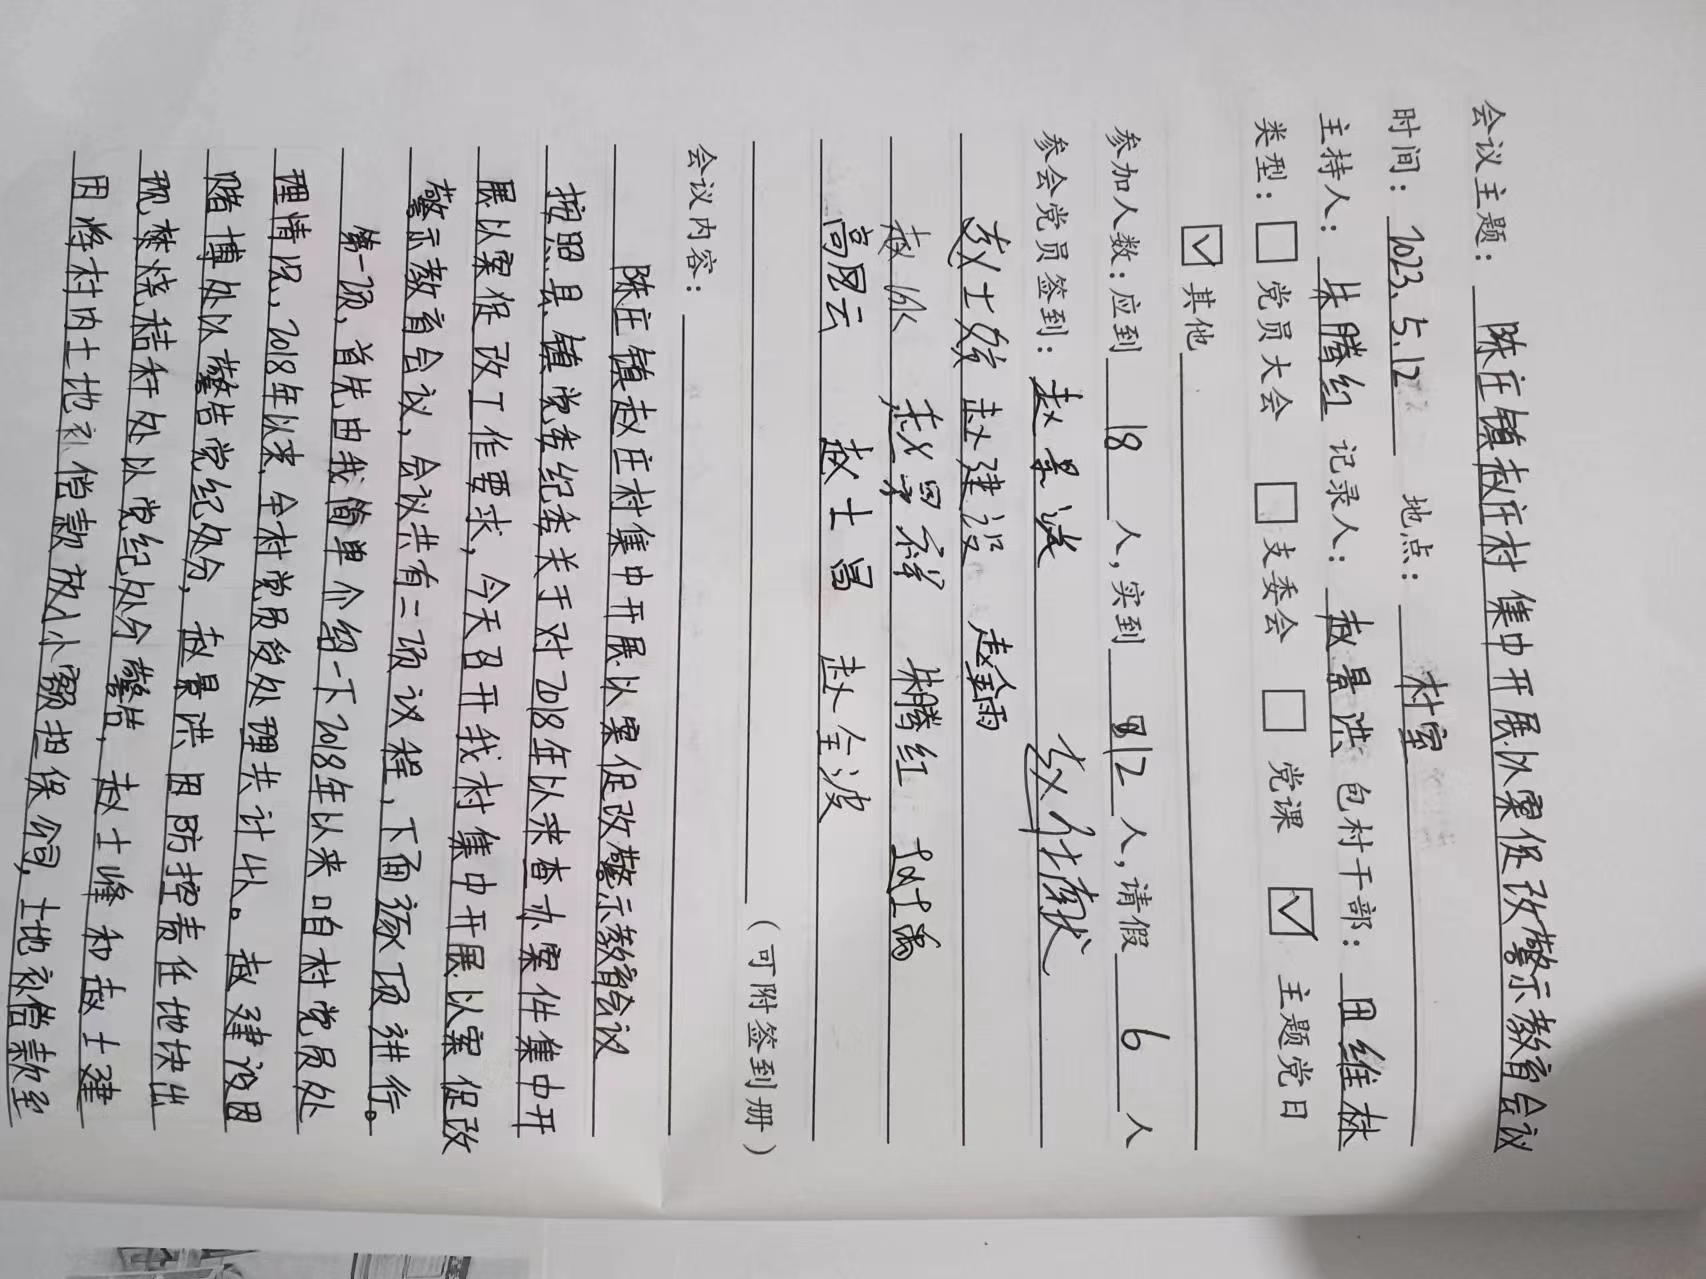 会议主题：陈庄镇赵庄村集中开展以案促改警示教育会议
时间：2023.5.12 地点：村室
主持人：朱腾红 记录人：赵景洪 包村干部：田维林
类型：□党员大会 □支委会 □党课 ☑主题党日
☑其他
参加人数：应到18人，实到12人，请假6人
参会党员签到：赵景波
赵建设 赵鑫雨
赵景祥 朱腾红
高凤云 赵士昌 赵全波
（可附签到册）
会议内容：
陈庄镇赵庄村集中开展以案促改警示教育会议
按照县、镇党委纪委关于对2018年以来查办案件集中开
展以案促改工作要求，今天召开我村集中开展以案促改
警示教育会议，会议共有三项议程，下面逐项进行。
第一项，首先由我简单介绍一下2018年以来咱村党员处
理情况，2018年以来，全村党员受处理共计4人。赵建设因
赌博处以警告党纪处分，赵景洪因防控责任地块出
现焚烧秸秆处以党纪处分警告，赵士峰和赵士建
因将村内土地补偿款放小小额担保公司，土地补偿款至